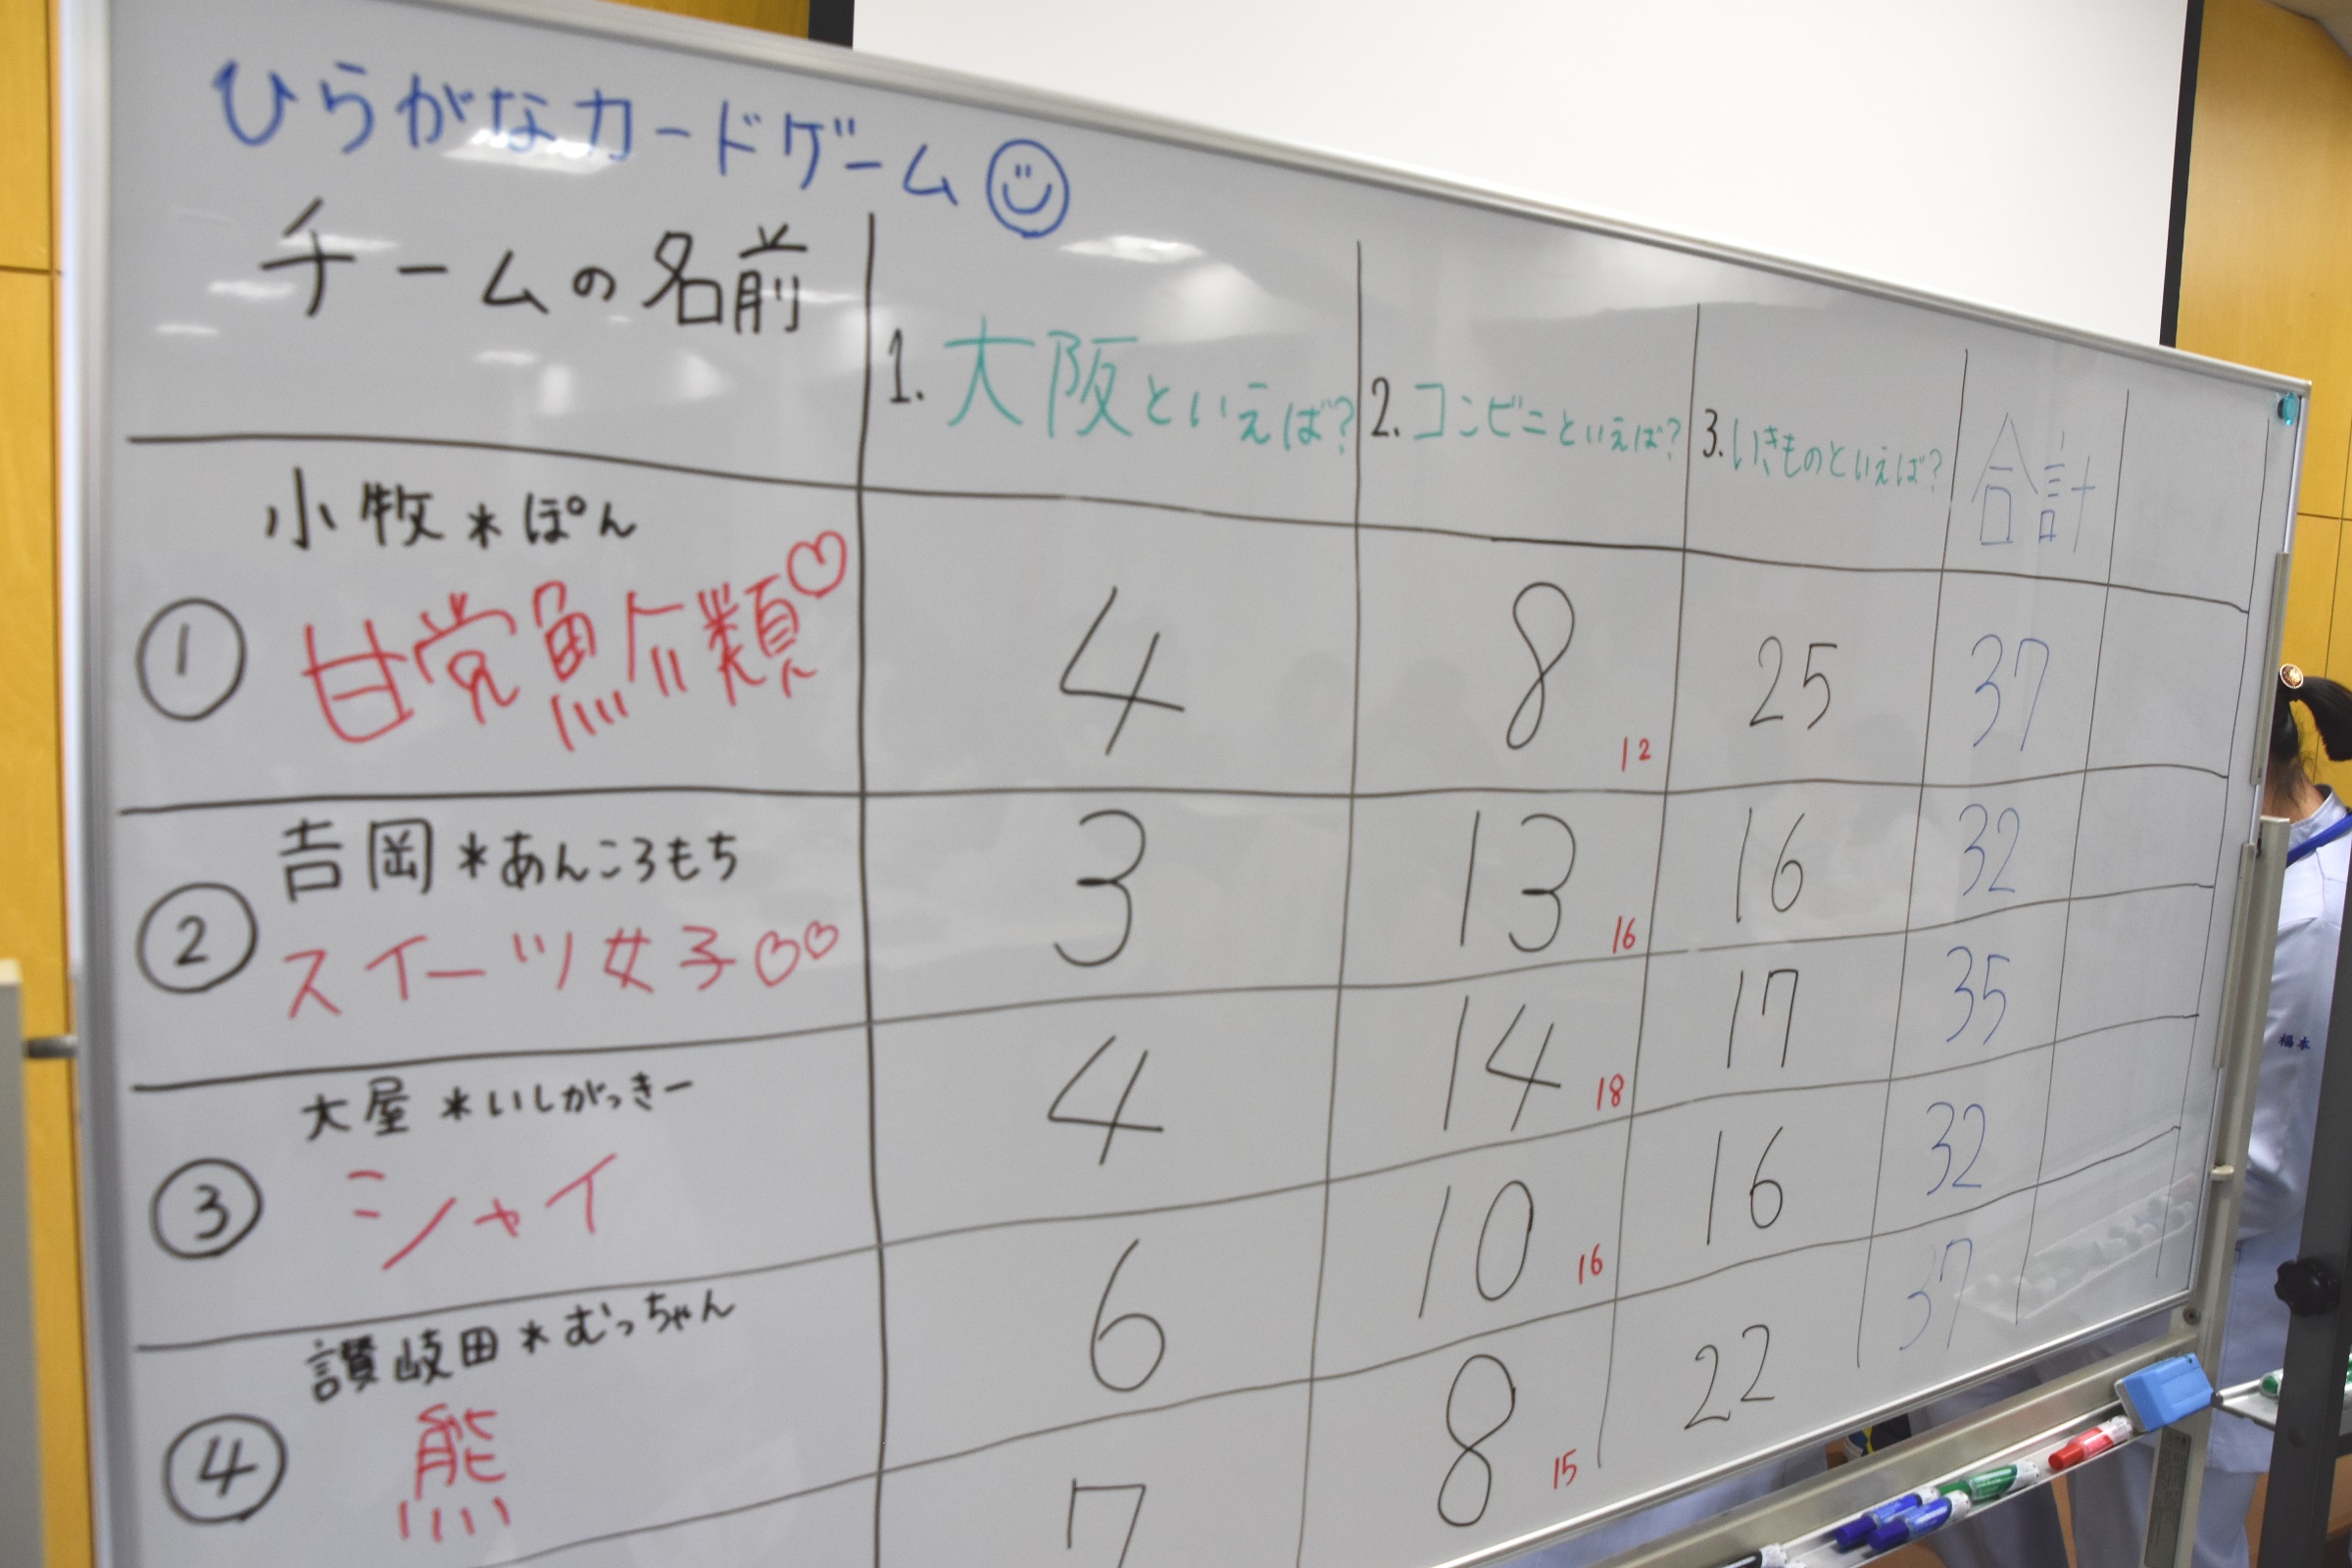 ひらがなカードゲーム
チームの名前
1. 大阪といえば?
2. コンビニといえば?
3. いきものといえば?
合計
小牧*ぽん
① 甘党魚介類♡
4
8
12
25
37
吉岡*あんころもち
② スイーツ女子♡♡
3
13
16
16
32
大屋*いしがっきー
③ シャイ
4
14
18
17
35
讃岐田*むっちゃん
④ 熊
6
10
16
16
32
7
8
15
22
37